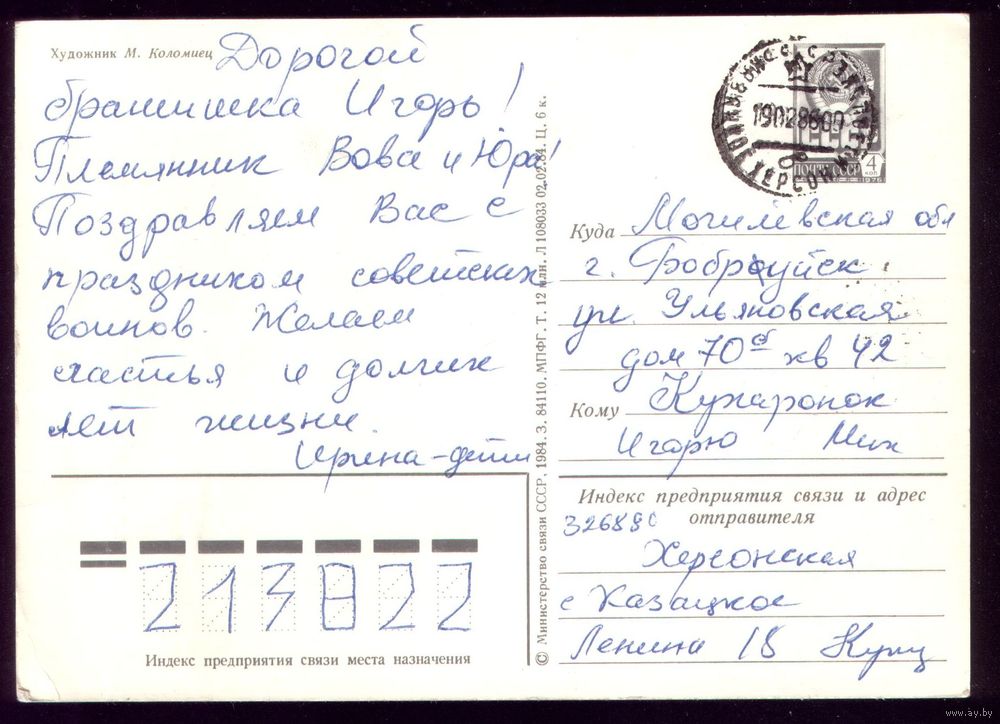 Художник М. Коломиец
Дорогой
братишка Игорь!
Племянник Вова и Юра!
Поздравляем Вас с
праздником советских
воинов. Желаем
счастья и долгих
лет жизни.
Ирина - дети
Индекс предприятия связи места назначения
213822
© Министерство связи СССР, 1984. З. 84110. МПФГ. Т. 12 млн. Л 108033 02.02.84. Ц. 6 к.
ПОЧТА СССР 4 КОП
1976
Куда Могилёвская обл
г. Бобруйск
ул. Ульяновская
дом 70 б кв 42
Кому Кухаронок
Игорю Мих
Индекс предприятия связи и адрес
отправителя
Херсонская
с Казацкое
Ленина 18
www.ay.by